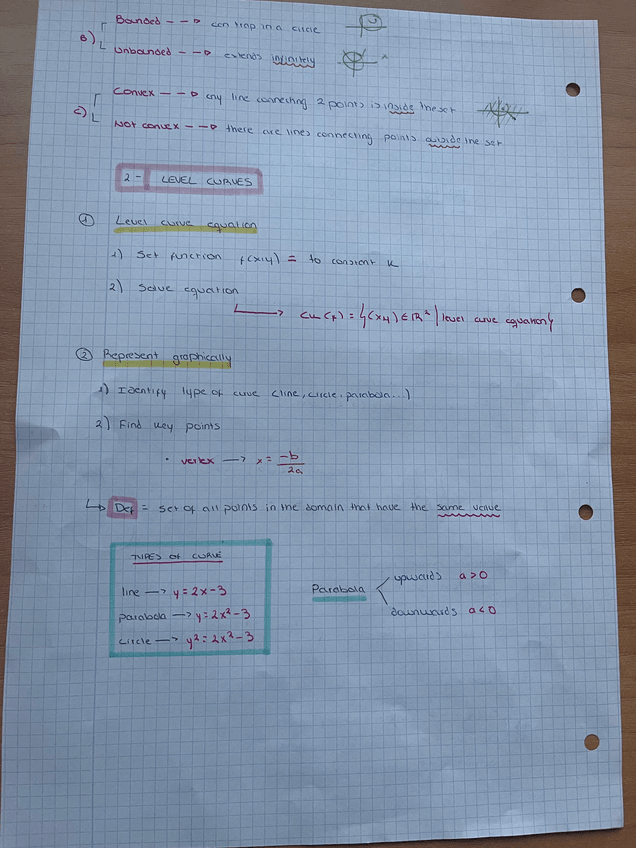 B) Bounded --→ can trap in a circle
Unbounded --→ extends infinitely
C) Convex --→ any line connecting 2 points is inside the set
Not convex --→ there are lines connecting points outside the set
2- LEVEL CURVES
① Level curve equation
1) Set function f(x,y) = to constant k
2) Solve equation
→ Ck(f) = {(x,y) ∈ R² | level curve equation}
② Represent graphically
1) Identify type of curve (line, circle, parabola...)
2) Find key points
• vertex → x = -b/2a
↳ Def = set of all points in the domain that have the same value
TYPES OF CURVE
line → y = 2x - 3
parabola → y = 2x² - 3
circle → y² = 2x² - 3
Parabola
upwards a > 0
downwards a < 0